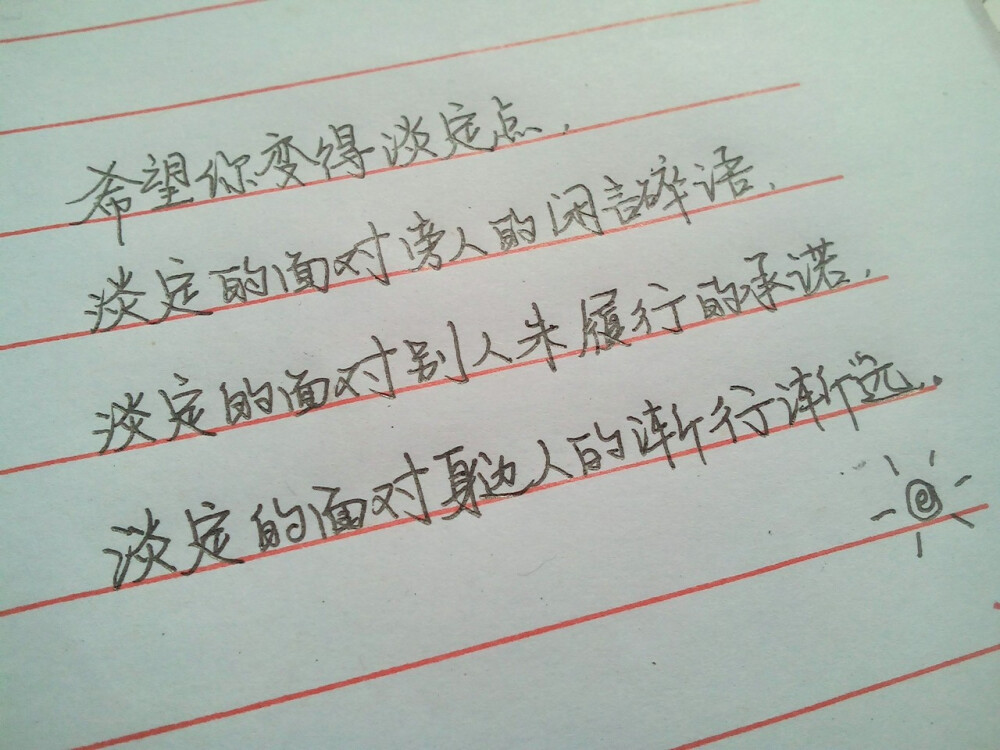 希望你变得淡定点，
淡定的面对旁人的闲言碎语，
淡定的面对别人未履行的承诺，
淡定的面对身边人的渐行渐远．